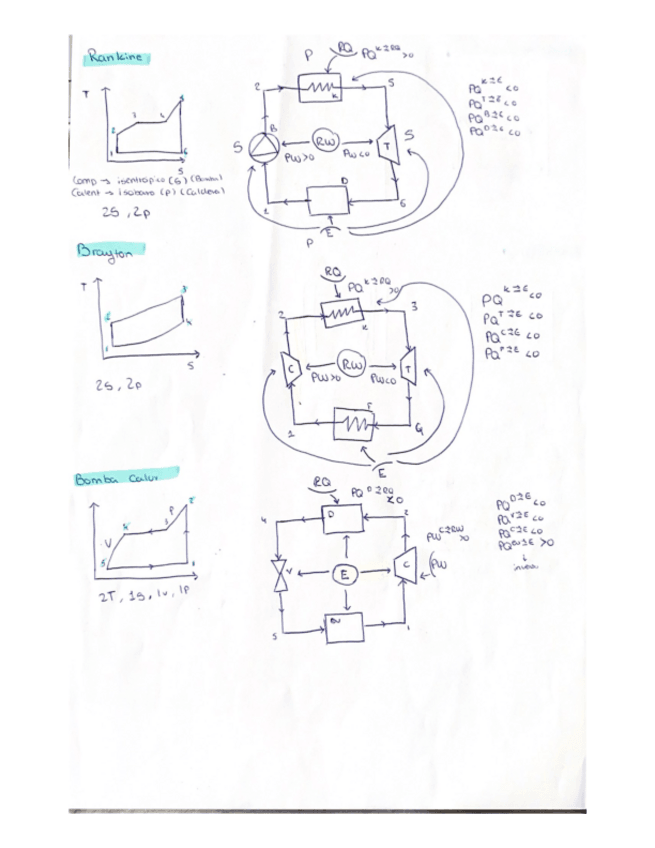 Rankine
P
RQ
PQ^K≥RQ >0
T
2
5
K
PQ^K≥E <0
PQ^T≥E <0
PQ^B≥E <0
PQ^D≥E <0
2
3
4
5
1
6
S
S
B
RW
T
S
PW>0
PW<0
D
1
6
P
E
Comp → isentrópico (S) (Bomba)
Calent → Isobaro (P) (Caldera)
2S, 2p
Brayton
RQ
PQ^K≥RQ >0
T
2
3
K
PQ^K≥E <0
PQ^T≥E <0
PQ^C≥E <0
PQ^F≥E <0
2
3
1
4
S
C
RW
T
PW>0
PW<0
F
1
4
E
2S, 2p
Bomba Calor
RQ
PQ^D≥RQ
<0
D
4
2
PQ^D≥E <0
PQ^V≥E <0
PQ^C≥E <0
PQ^EV≥E >0
↓
2
P
4
3
V
5
1
PW^C≥RW >0
V
E
C
PW
EV
5
1
2T, 1S, 1v, 1P